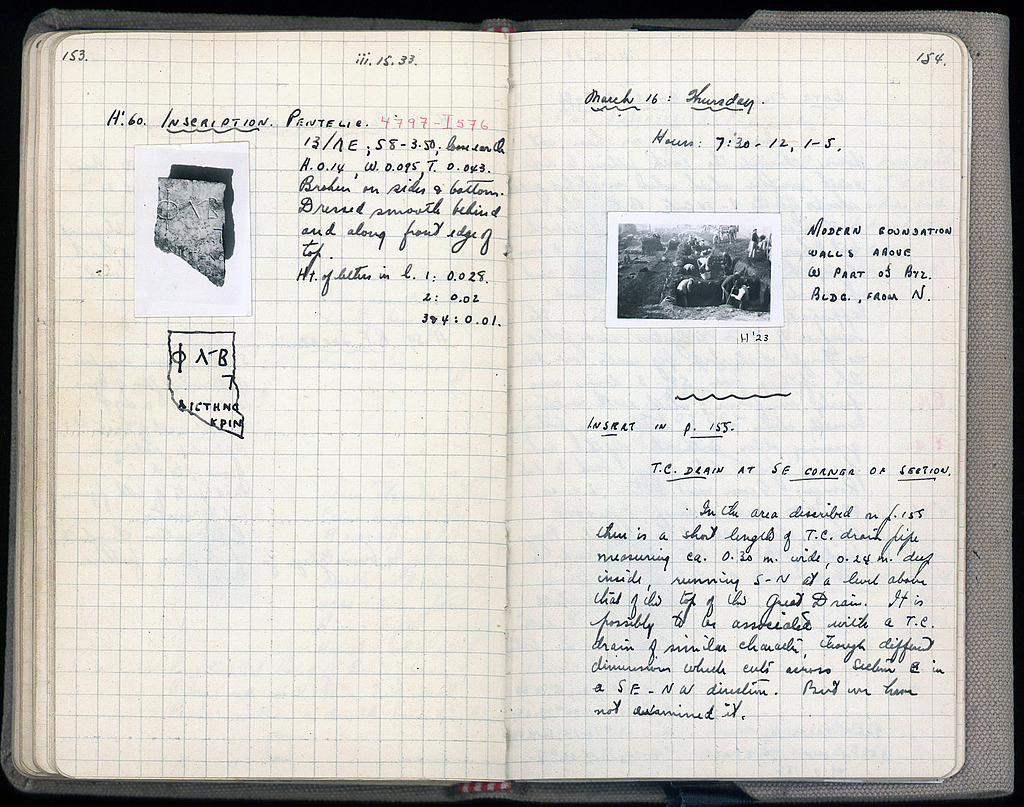 153.
iii. 15. 33.
H'. 60. INSCRIPTION. PENTELIC. 4797-I576
13/ΛE ; 58-3.50; loose earth
H. 0.14, W. 0.095, T. 0.043.
Broken on sides & bottom.
Dressed smooth behind
and along front edge of
top.
Ht. of letters in l. 1: 0.028.
2: 0.02
3&4: 0.01.
Φ Λ-Β
ΙΣΤΗΝΟ
ΚΡΙΝ
154.
March 16: Thursday.
Hours: 7:30-12, 1-5.
MODERN FOUNDATION
WALLS ABOVE
W PART OF BYZ.
BLDG., FROM N.
H'23
INSERT IN p. 155.
T.C. DRAIN AT SE CORNER OF SECTION.
In the area described on p. 155
there is a short length of T.C. drain pipe
measuring ca. 0.30 m. wide, 0.24 m. deep
inside, running S-N at a level above
that of the top of the Great Drain. It is
possibly to be associated with a T.C.
drain of similar character, though different
dimensions which cuts across Section in
a SE-NW direction. But we have
not examined it.